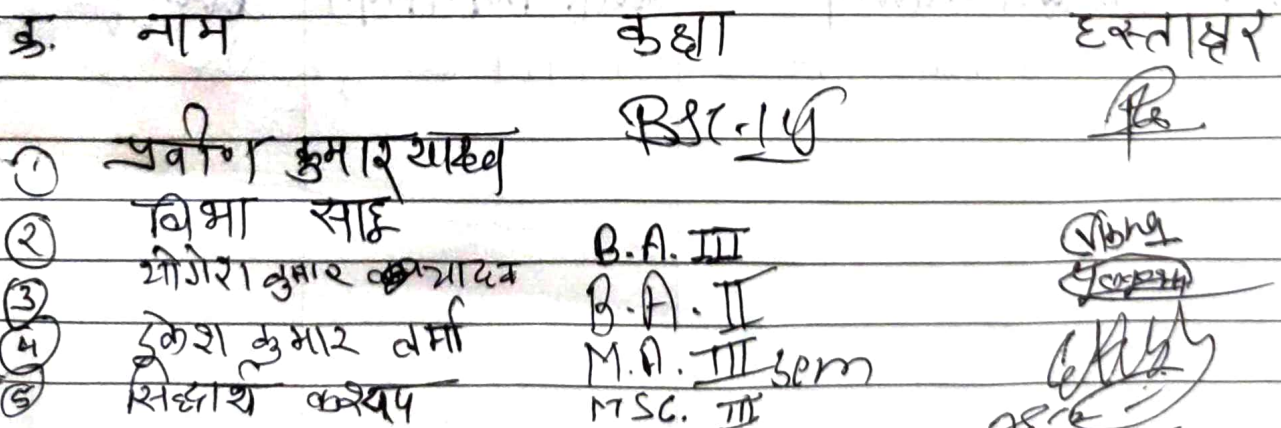 क्र. नाम कक्षा हस्ताक्षर
① प्रवीण कुमार यादव BSC-
② विभा साहू B.A. III Vibha
③ योगेश कुमार यादव B.A. II
④ डुकेश कुमार वर्मा M.A. III sem
⑤ सिद्धार्थ कश्यप MSC. III